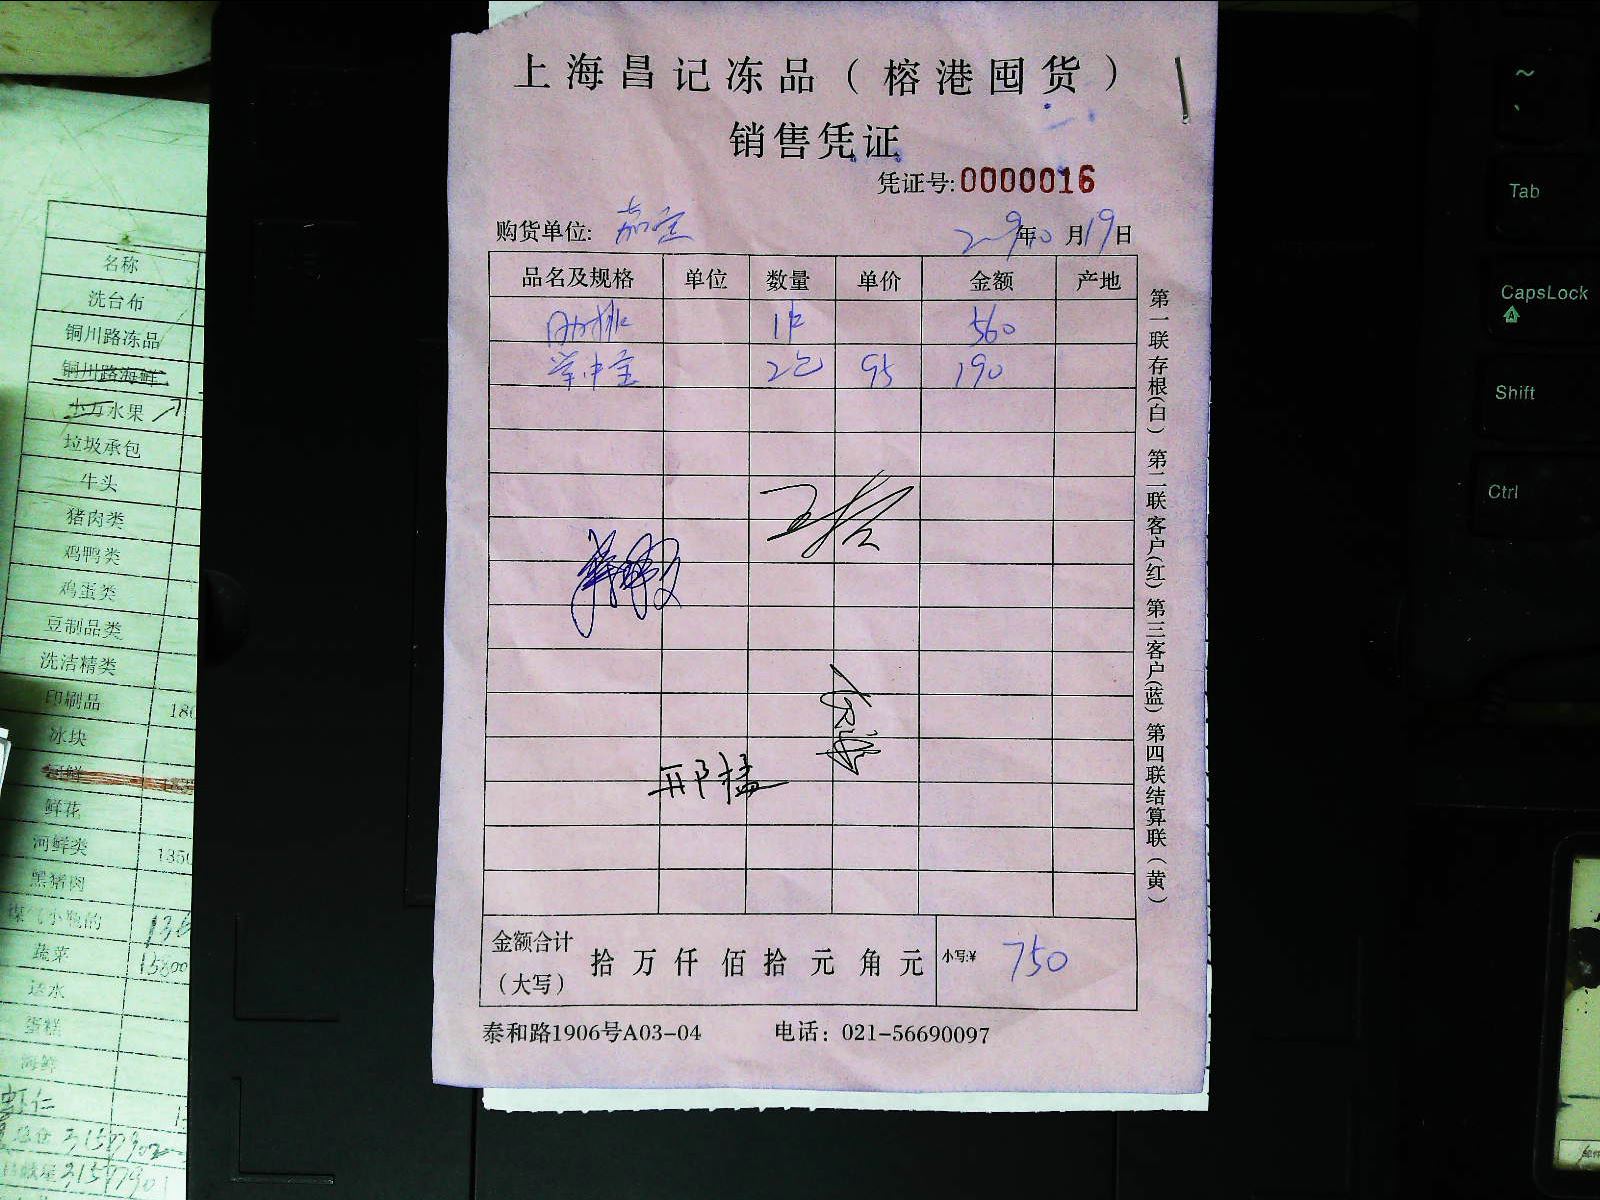 上海昌记冻品（榕港囤货）
销售凭证
凭证号:0000016
购货单位: 嘉宝 年 月19日
品名及规格 单位 数量 单价 金额 产地
肋排 1件 560
掌中宝 2包 95 190
邢猛
金额合计（大写） 拾 万 仟 佰 拾 元 角 元 小写:¥ 750
泰和路1906号A03-04 电话：021-56690097
第一联存根(白) 第二联客户(红) 第三客户(蓝) 第四联结算联（黄）
名称
洗台布
铜川路冻品
铜川路海鲜
小万水果
垃圾承包
牛头
猪肉类
鸡鸭类
鸡蛋类
豆制品类
洗洁精类
印刷品 180
冰块
鲜花
河鲜类 1350
黑猪肉
蔬菜 15800
送水
蛋糕
海鲜
虾仁
~
Tab
CapsLock
A
Shift
Ctrl